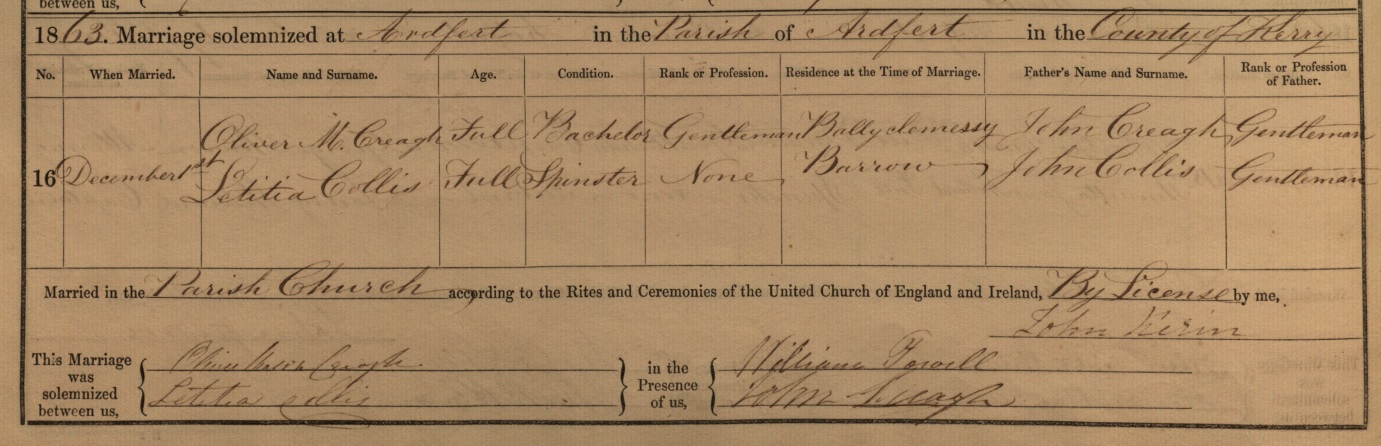 between us,
1863. Marriage solemnized at Ardfert in the Parish of Ardfert in the County of Kerry
No. When Married. Name and Surname. Age. Condition. Rank or Profession. Residence at the Time of Marriage. Father's Name and Surname. Rank or Profession of Father.
Oliver M. Creagh Full Bachelor Gentleman Ballyclemessy John Creagh Gentleman
16 December 1st Letitia Collis Full Spinster None Barrow John Collis Gentleman
Married in the Parish Church according to the Rites and Ceremonies of the United Church of England and Ireland, By License by me,
John Kerin
This Marriage was solemnized between us, { Oliver Creagh } in the Presence of us, { William
Letitia Collis John Creagh